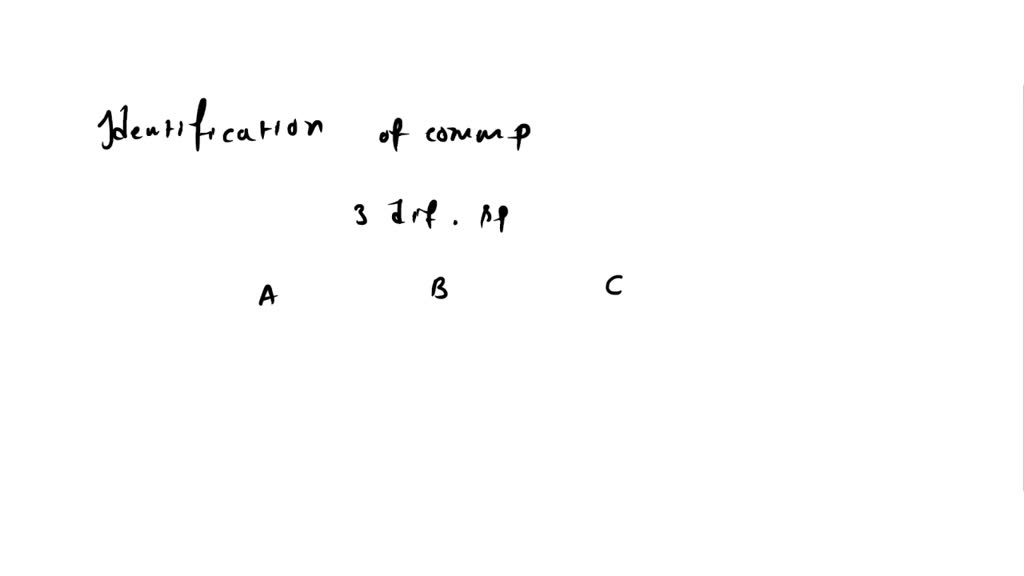 Identification of comm p
3 dif. sp
A B C